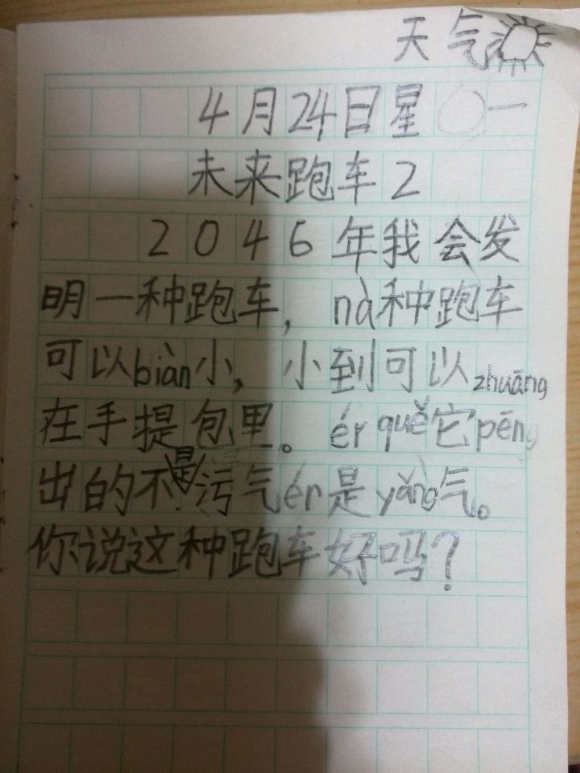 天气
4月24日星〇一
未来跑车2
2046年我会发
明一种跑车，nà种跑车
可以biàn小，小到可以zhuāng
在手提包里。ér quě它pēn
出的不是污气ér是yǎng气。
你说这种跑车好吗？